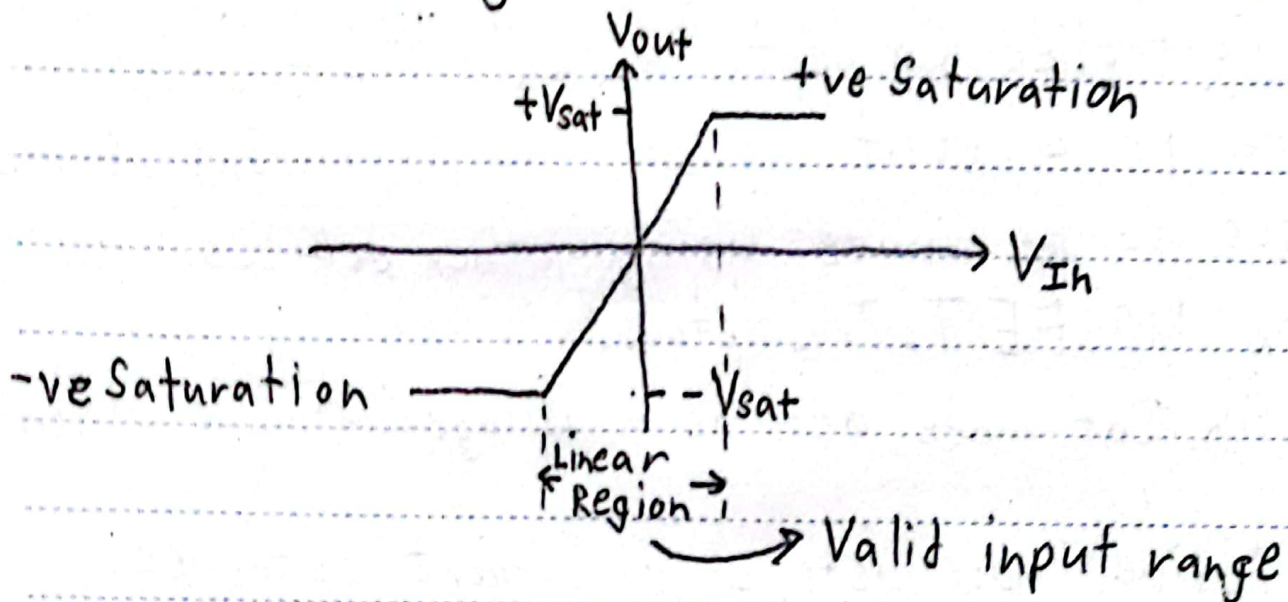 Vout
+Vsat
+ve Saturation
VIn
-ve Saturation
-Vsat
Linear
Region
Valid input range